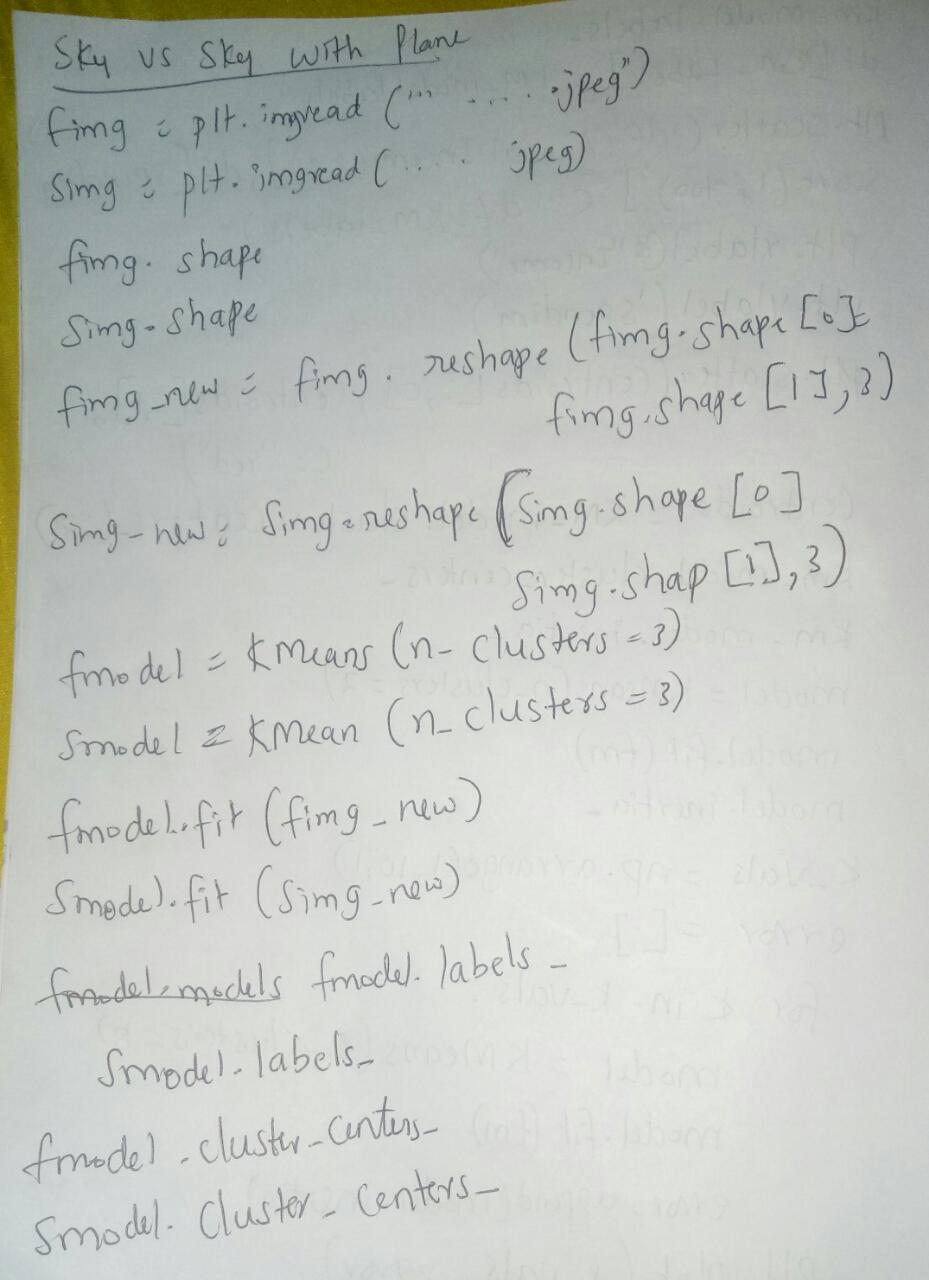 Sky vs Sky with Plane
fimg = plt.imgread ("... ... .jpeg")
Simg = plt.imgread (... . jpeg)
fimg. shape
Simg. shape
fimg_new = fimg. reshape (fimg.shape [0]
fimg.shape [1], 3)
Simg_new = Simg.reshape (Simg.shape [0]
Simg.shap [1], 3)
fmodel = KMeans (n_clusters = 3)
Smodel = KMean (n_clusters = 3)
fmodel.fit (fimg_new)
Smodel.fit (Simg_new)
fmodel.models fmodel. labels_
Smodel. labels_
fmodel . cluster_centers_
Smodel. Cluster_centers_